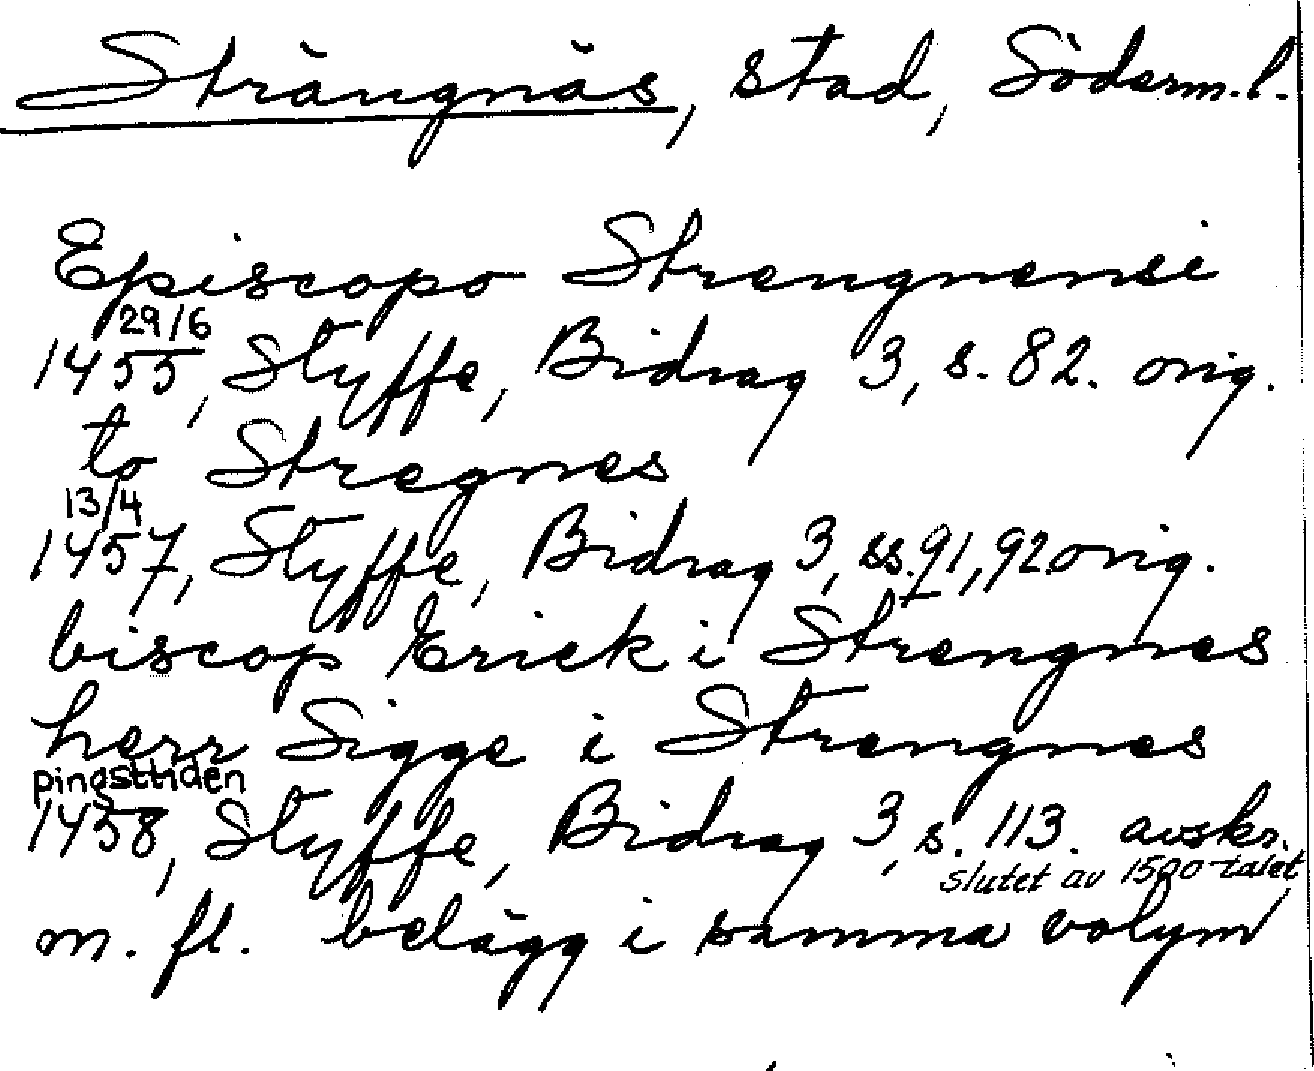 Strängnäs, stad, Söderm.l.
Episcopo Strengnensi
29/6
1455, Styffe, Bidrag 3, s. 82. orig.
to Stregnes
13/4
1457, Styffe, Bidrag 3, ss. 91, 92 orig.
biscop Erick i Strengnes
herr Sigge i Strengnes
pingsttiden
1458, Styffe, Bidrag 3, s. 113. avskr.
slutet av 1500-talet
m. fl. belägg i samma volym